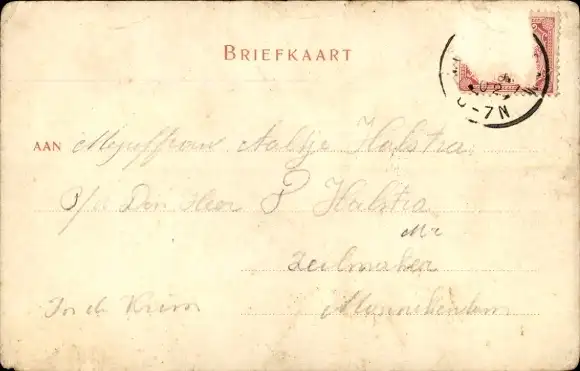 BRIEFKAART
6-7N
AAN Mejuffrouw Aaltje Halstra
p/a Den Heer P Halstra
Mr
Zeilmaker
In de Krim Monnikendam